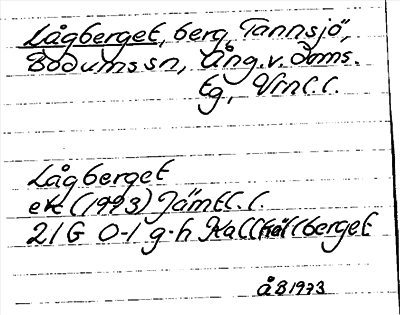 Lågberget, berg, Tannsjö,
Bodums sn, Ång.v. doms.
tg, Vrnl.l.
Lågberget
ek (1973) Jämtl.l.
21G 0-1 g-h Kallkällberget
ÅB 1973